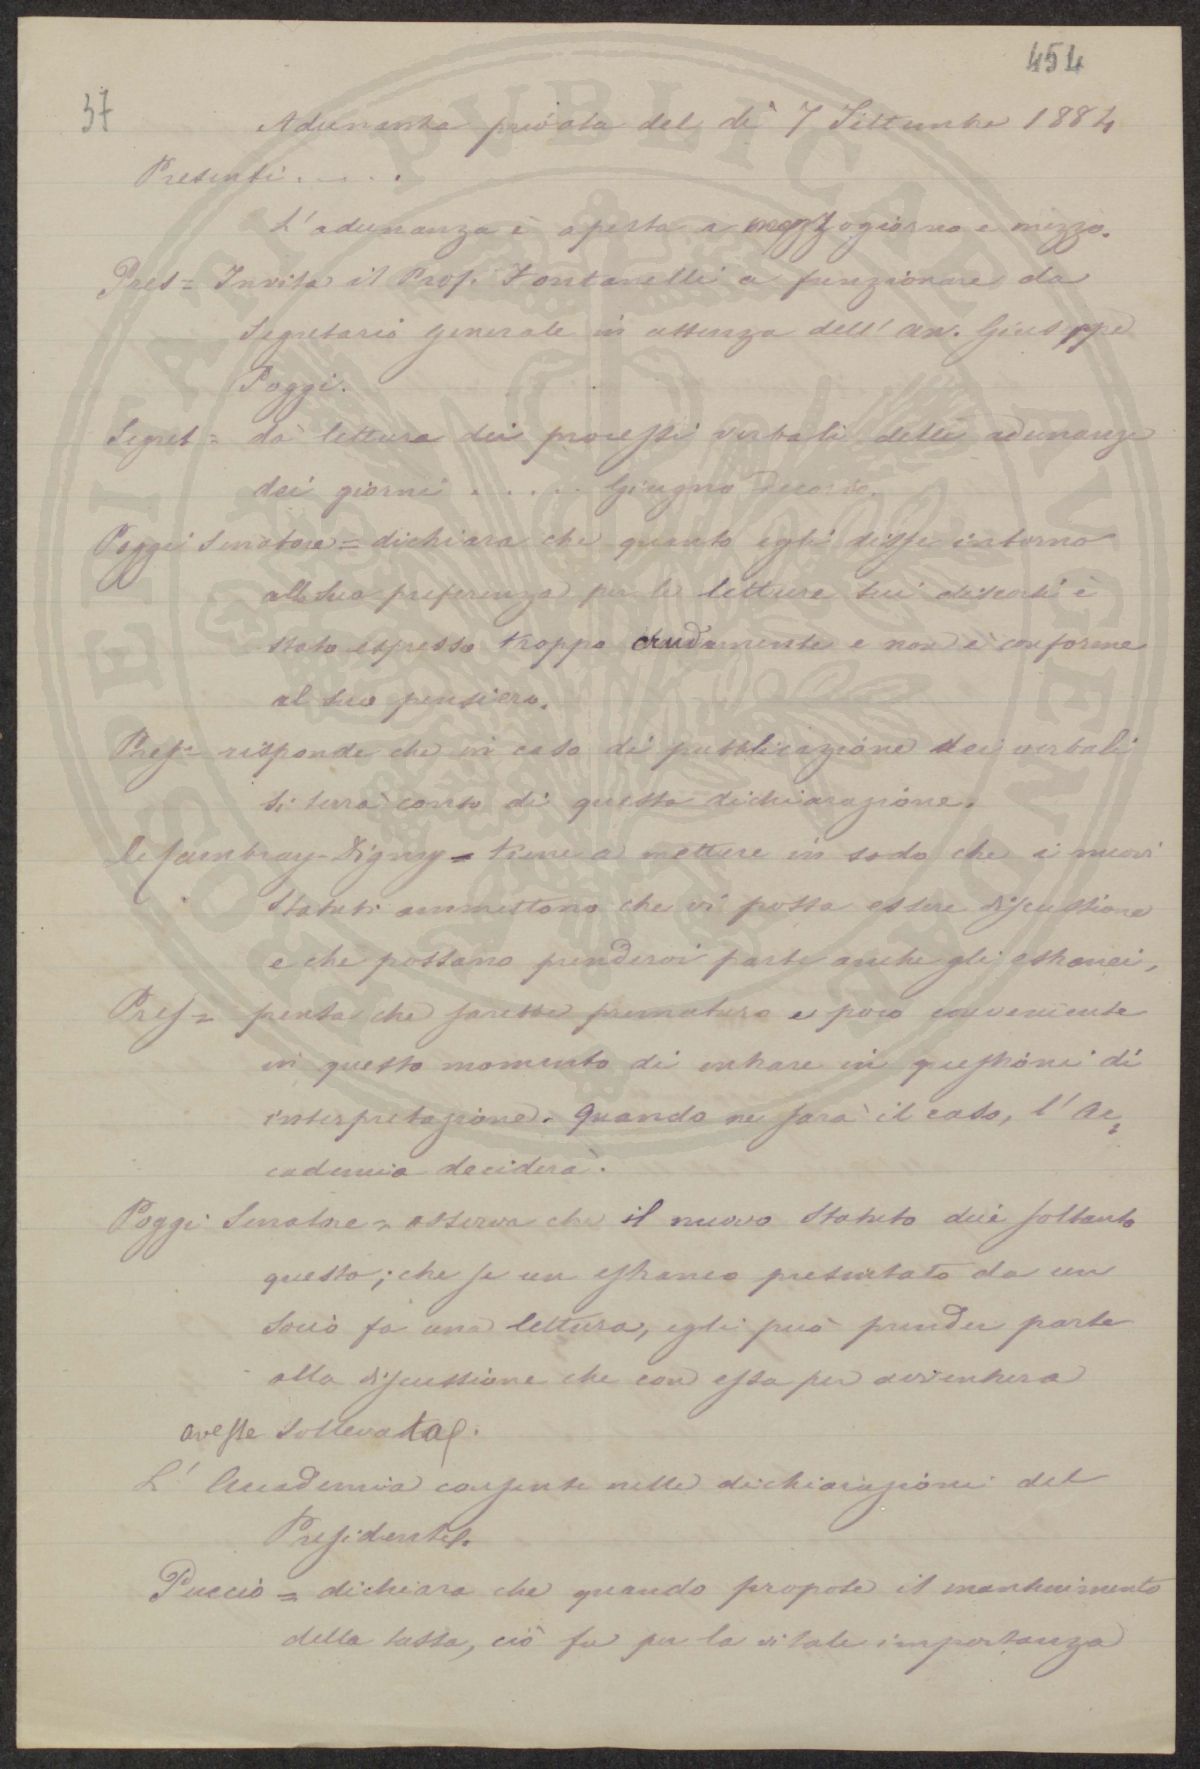 454
37
Adunanza privata del dì 7 Settembre 1884
Presenti . . . . .
L'adunanza è aperta a mezzogiorno e mezzo.
Pres = Invita il Prof. Fontanelli a funzionare da
Segretario generale in assenza dell' avv. Giuseppe
Poggi.
Segret = dà lettura dei processi verbali delle adunanze
dei giorni . . . . . Giugno decorso.
Poggi Senatore = dichiara che quanto egli disse intorno
alla sua preferenza per le letture sui discorsi è
stato espresso troppo crudamente e non è conforme
al suo pensiero.
Pres = risponde che in caso di pubblicazione dei verbali
si terrà conto di questa dichiarazione.
De Cambray-Digny = tiene a mettere in sodo che i nuovi
Statuti ammettono che vi possa essere discussione
e che possano prendervi parte anche gli estranei,
Pres = pensa che sarebbe prematuro e poco conveniente
in questo momento di entrare in questioni di
interpretazione. Quando ne sarà il caso, l' Ac=
cademia deciderà.
Poggi Senatore = osserva che il nuovo Statuto dice soltanto
questo; che se un estraneo presentato da un
Socio fa una lettura, egli può prender parte
alla discussione che con essa per avventura
avesse sollevata.
L' Accademia consente nelle dichiarazioni del
Presidente.
Puccio = dichiara che quando propose il mantenimento
della tassa, ciò fu per la vitale importanza
PROSPERITATI PUBLICAE AUGENDAE